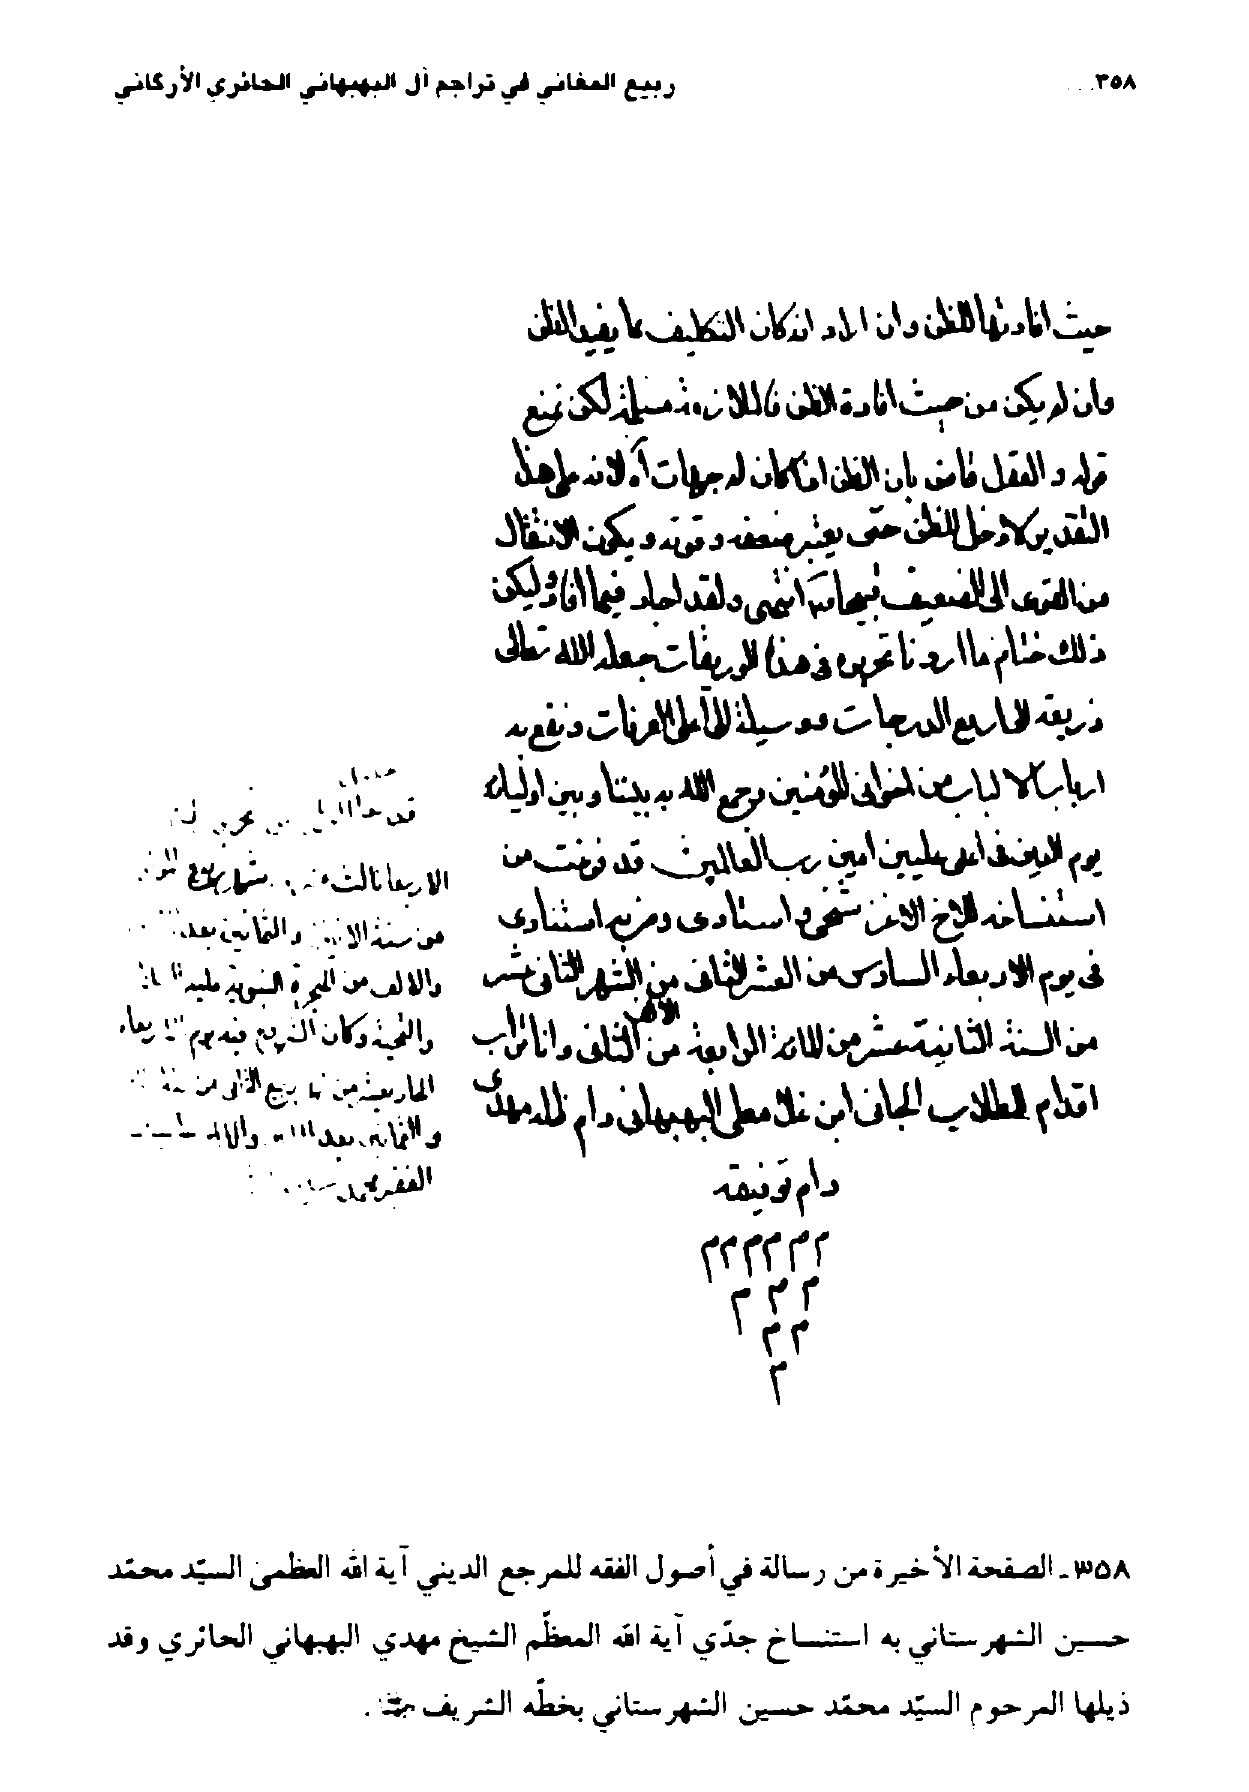 ٣٥٨
ربيع المغاني في تراجم آل البهبهاني الحائري الأركاني
حيث افادتها للظن وان اراد انه كان التكليف بما يفيد الظن
وان لم يكن من حيث افادة الظن فالملازمة مسلمة لكن نمنع
قوله و العقل قاض بان الظن اذا كان له جهات آه لانه على هذا
التقدير لا دخل للظن حتى يعتبر ضعفه و قوته و يكون الانتقال
من القوى الى الضعيف قبيحا منه انتهى و لقد اجاد فيما افاد وليكن
ذلك ختام ما اردنا تحريره فى هذه الوريقات جعله الله تعالى
ذريعة الى رفيع الدرجات و وسيلة الى اعلى الغرفات و نفع به
ارباب الالباب من اخوانى المؤمنين و جمع الله به بيننا و بين اوليائه
يوم الدين فى اعلى عليين امين رب العالمين قد فرغت من
استنساخه للاخ الاعز شيخى و استادى و من به استنادى
فى يوم الاربعاء السادس من العشر الثانى من الشهر الثانى عشر
من السنة الثانية عشر من المائة الرابعة من الالف الثانى وانا تراب
اقدام الطلاب الجانى ابن غلا معلى البهبهانى دام ظله مهدى
دام توفيقه
م م م م م م
م م م
م م
م
قد
الاربعا ثالث شهر ربيع
من سنة و الثمانين بعد
والالف من الهجرة النبوية عليه
والتحية وكان الشروع فيه يوم
من ربيع الثانى من سنة
و الثمانين بعد
الفقير محمد
٣٥٨ ـ الصفحة الأخيرة من رسالة في أصول الفقه للمرجع الديني آية الله العظمىٰ السيّد محمّد
حسين الشهرستاني به استنساخ جدّي آية الله المعظّم الشيخ مهدي البهبهاني الحائري وقد
ذيلها المرحوم السيّد محمّد حسين الشهرستاني بخطّه الشريف .